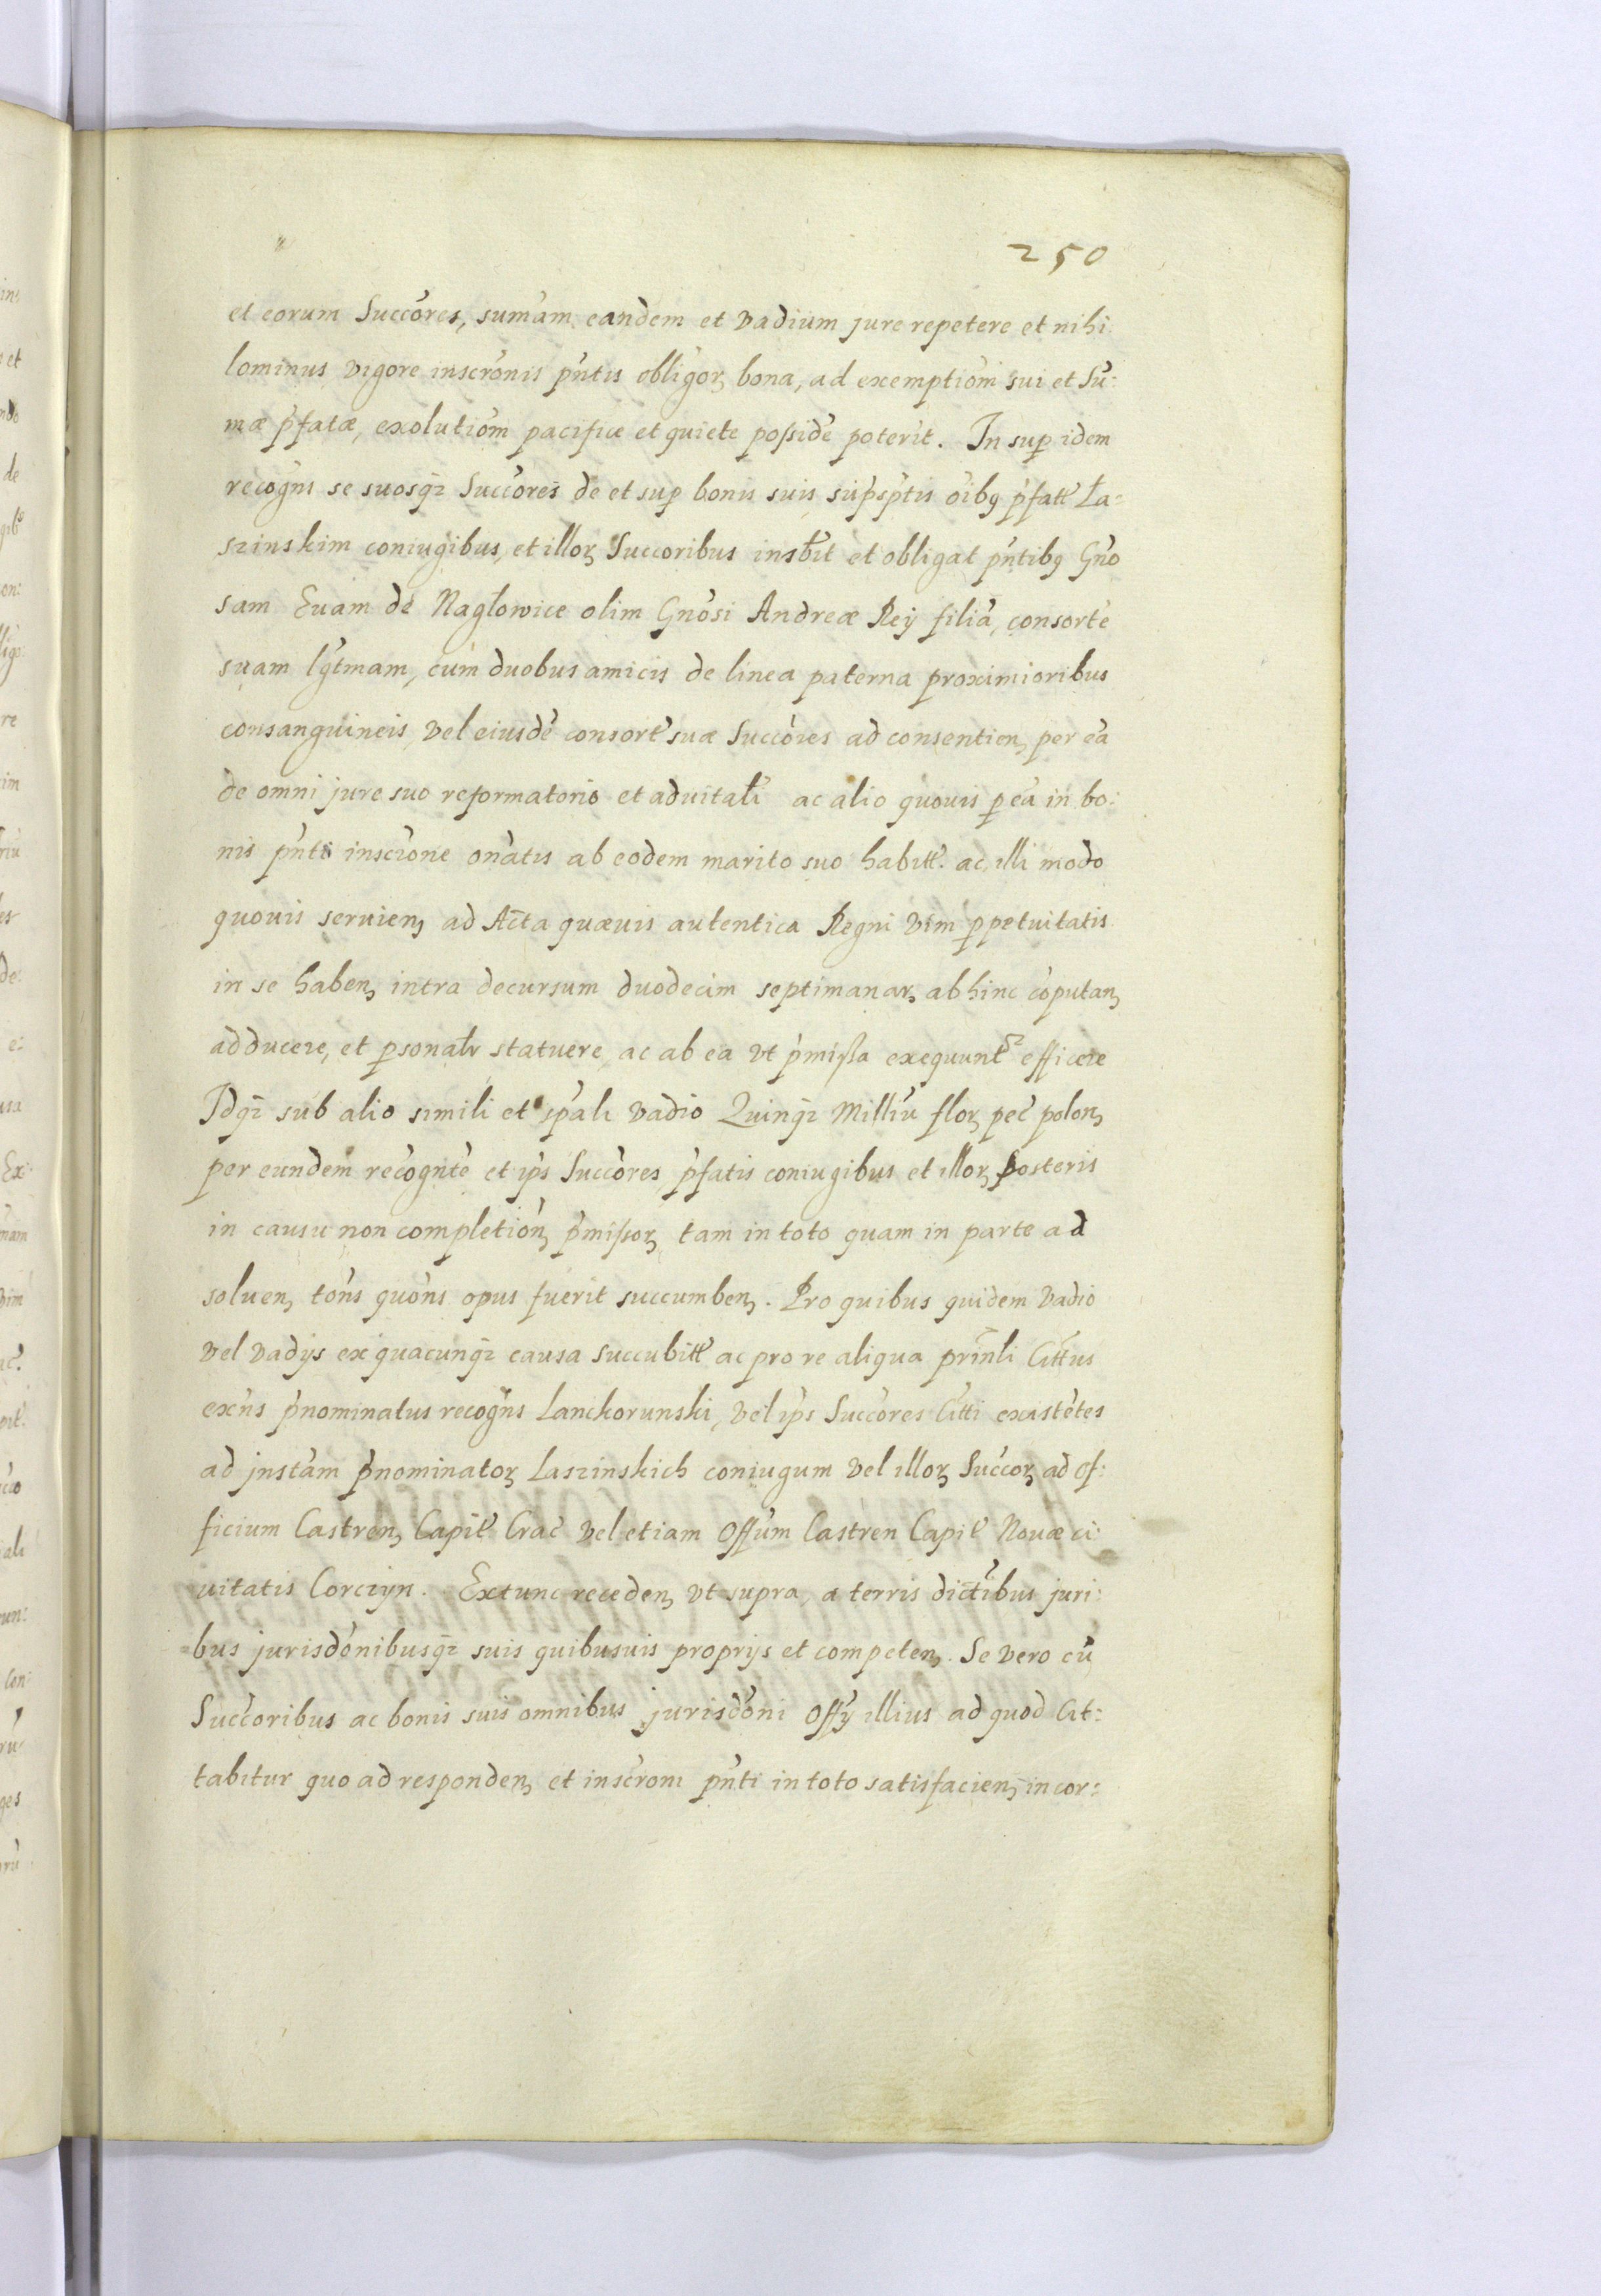 250
et eorum Succores, sumam eandem et vadium jure repetere et nihi:
lominus vigore inscronis pntis obligor, bona, ad exemptiom sui et Su:
mæ pfatæ, exolutiom pacifice et quiete posside poterit. In sup idem
recogns se suosq₃ Succores de et sup bonis suis supsptis oibꝯ pfatt La:
szinskim coniugibus, et illoꝝ Succoribus insbit et obligat pntibꝯ Gno
sam Euam de Naglowice olim Gnosi Andreæ Rey filia, consorte
suam lgtmam, cum duobus amicis de linea paterna proximioribus
consanguineis, vel eiusde consort suæ Succores ad consentien, per ea
de omni jure suo reformatorio et aduitali ac alio quouis p ea in bo:
nis pnti inscrone onatis ab eodem marito suo habitt. ac illi modo
quouis seruien, ad Acta quæuis autentica Regni vim ppetuitatis
in se haben, intra decursum duodecim septimanaꝝ ab hinc coputan,
adducere, et psonalr statuere, ac ab ea vt pmissa exequunt efficere
Idq₃ sub alio simili et spali vadio Quinq₃ Milliu floꝝ pec polon,
per eundem recognte et ips Succores pfatis coniugibus et illoꝝ posteris
in causu non completion, pmissoꝝ tam in toto quam in parte ad
soluen, tons quons opus fuerit succumben. Pro quibus quidem vadio
vel vadys ex quacunq₃ causa succubitt ac pro re aliqua prinli Cittus
exns pnominatus recogns Lanckorunski, vel ips Succores Citti existetes
ad jnstam pnominatoꝝ Laszinskich coniugum vel illoꝝ Succoꝝ ad of:
ficium Castren, Capit Crac vel etiam Offum Castren Capit Nouæ ci:
uitatis Corczyn. Extunc receden, vt supra, a terris dictibus juri:
bus jurisdonibusq₃ suis quibusuis proprys et competen. Se vero cu
Succoribus ac bonis suis omnibus jurisdoni Offy illius ad quod Cit:
tabitur quo ad responden, et inscroni pnti in toto satisfacien, incor: